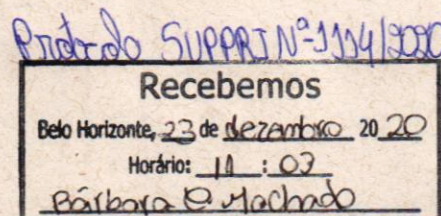 Protocolo SUPPRI Nº 1114/2020
Recebemos
Belo Horizonte, 23 de dezembro 20 20
Horário: 11 : 07
Bárbara C Machado